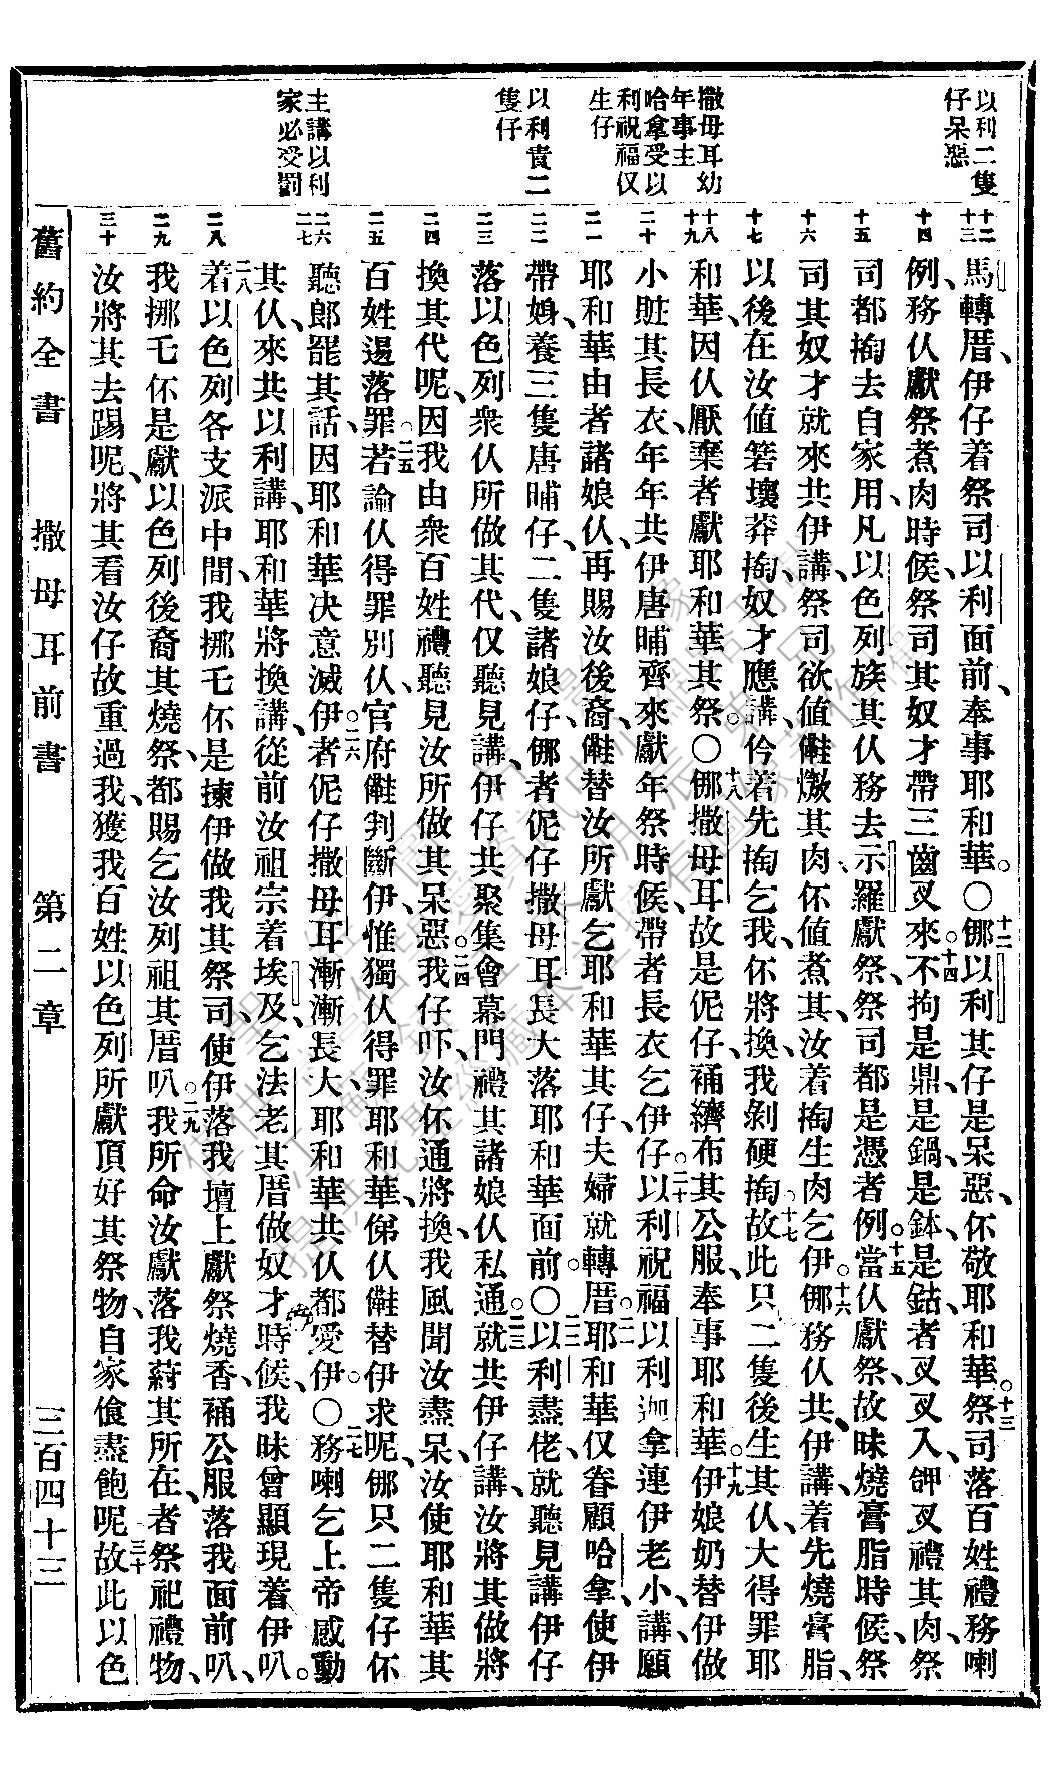 以利二隻
仔呆惡
撒母耳幼
年事主
哈拿受以
利祝福仅
生仔
以利責二
隻仔
主講以利
家必受罰
十二
十三
十四
十五
十六
十七
十八
十九
二十
二一
二二
二三
二四
二五
二六
二七
二八
二九
三十
馬轉厝、伊仔着祭司以利面前、奉事耶和華。○十二𠆧以利其仔是呆惡、伓敬耶和華。十三祭司落百姓禮務喇
例、務仈獻祭煮肉時候、祭司其奴才帶三齒叉來。十四不拘是鼎、是鍋、是鉢、是鈷、者叉叉入、呷叉禮其肉、祭
司都搯去自家用、凡以色列族其仈務去示羅獻祭、祭司都是憑者例。十五當仈獻祭、故昧燒膏脂時候、祭
司其奴才就來共伊講、祭司欲値𣍐燉其肉、伓値煮其、汝着搯生肉乞伊。十六𠆧務仈共伊講、着先燒膏脂、
以後在汝値簭壞莽搯、奴才應講、伱着先搯乞我、伓將換、我剝硬搯。十七故此只二隻後生其仈、大得罪耶
和華、因仈厭棄者獻耶和華其祭。○十八𠆧撒母耳故是伲仔、䘵纃布其公服、奉事耶和華。十九伊娘奶替伊做
小䏢其長衣、年年共伊唐晡齊來獻年祭時候、帶者長衣乞伊仔。二十以利祝福以利迦拿連伊老小、講、願
耶和華由者諸娘仈、再賜汝後裔、𣍐替汝所獻乞耶和華其仔、夫婦就轉厝。二一耶和華仅眷顧哈拿、使伊
帶娒、養三隻唐晡仔、二隻諸娘仔、𠆧者伲仔撒母耳長大落耶和華面前。○二二以利盡佬、就聽見講、伊仔
落以色列衆仈所做其代、仅聽見講、伊仔共聚集會幕門禮其諸娘仈私通。二三就共伊仔講、汝將其做將
換其代呢、因我由衆百姓禮聽見汝所做其呆惡。二四我仔吓、汝伓通將換、我風聞汝盡呆、汝使耶和華其
百姓逿落罪。二五若論仈得罪別仈、官府𣍐判斷伊、惟獨仈得罪耶和華、俤仈𣍐替伊求呢、𠆧只二隻仔伓
聽郎罷其話、因耶和華决意滅伊。二六者伲仔撒母耳漸漸長大、耶和華共仈都愛伊。○二七務喇乞上帝感動
其仈、來共以利講、耶和華將換講、從前汝祖宗着埃及、乞法老其厝做奴才時候、我昧曾顯現着伊叭。
二八着以色列各支派中間、我挪乇伓是揀伊做我其祭司、使伊落我壇上獻祭燒香、䘵公服落我面前叭、
我挪乇伓是獻以色列後裔其燒祭、都賜乞汝列祖其厝叭。二九我所命汝獻落我蔚其所在、者祭祀禮物、
汝將其去踢呢、將其看汝仔故重過我、獲我百姓以色列所獻頂好其祭物、自家偹盡飽呢。三十故此以色
舊約全書　撒母耳前書　第二章　三百四十三